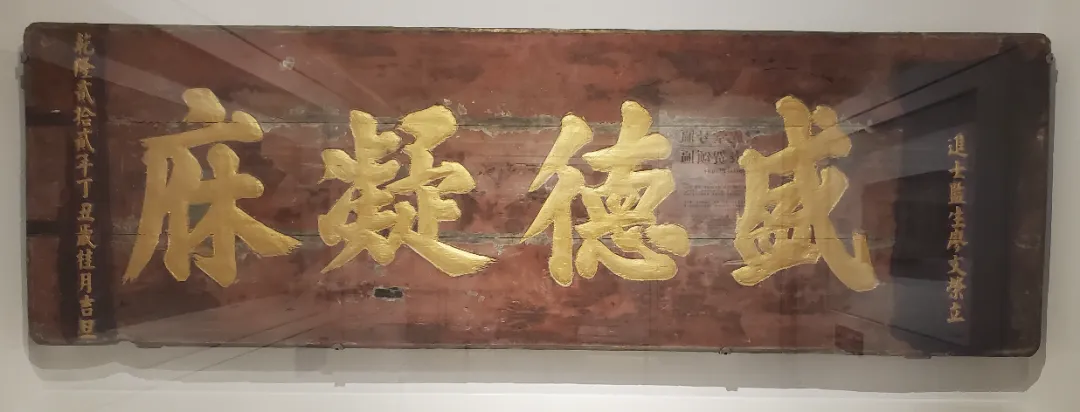 進士監生廖文榮立
盛德凝庥
乾隆貳拾貳年丁丑歲桂月吉旦